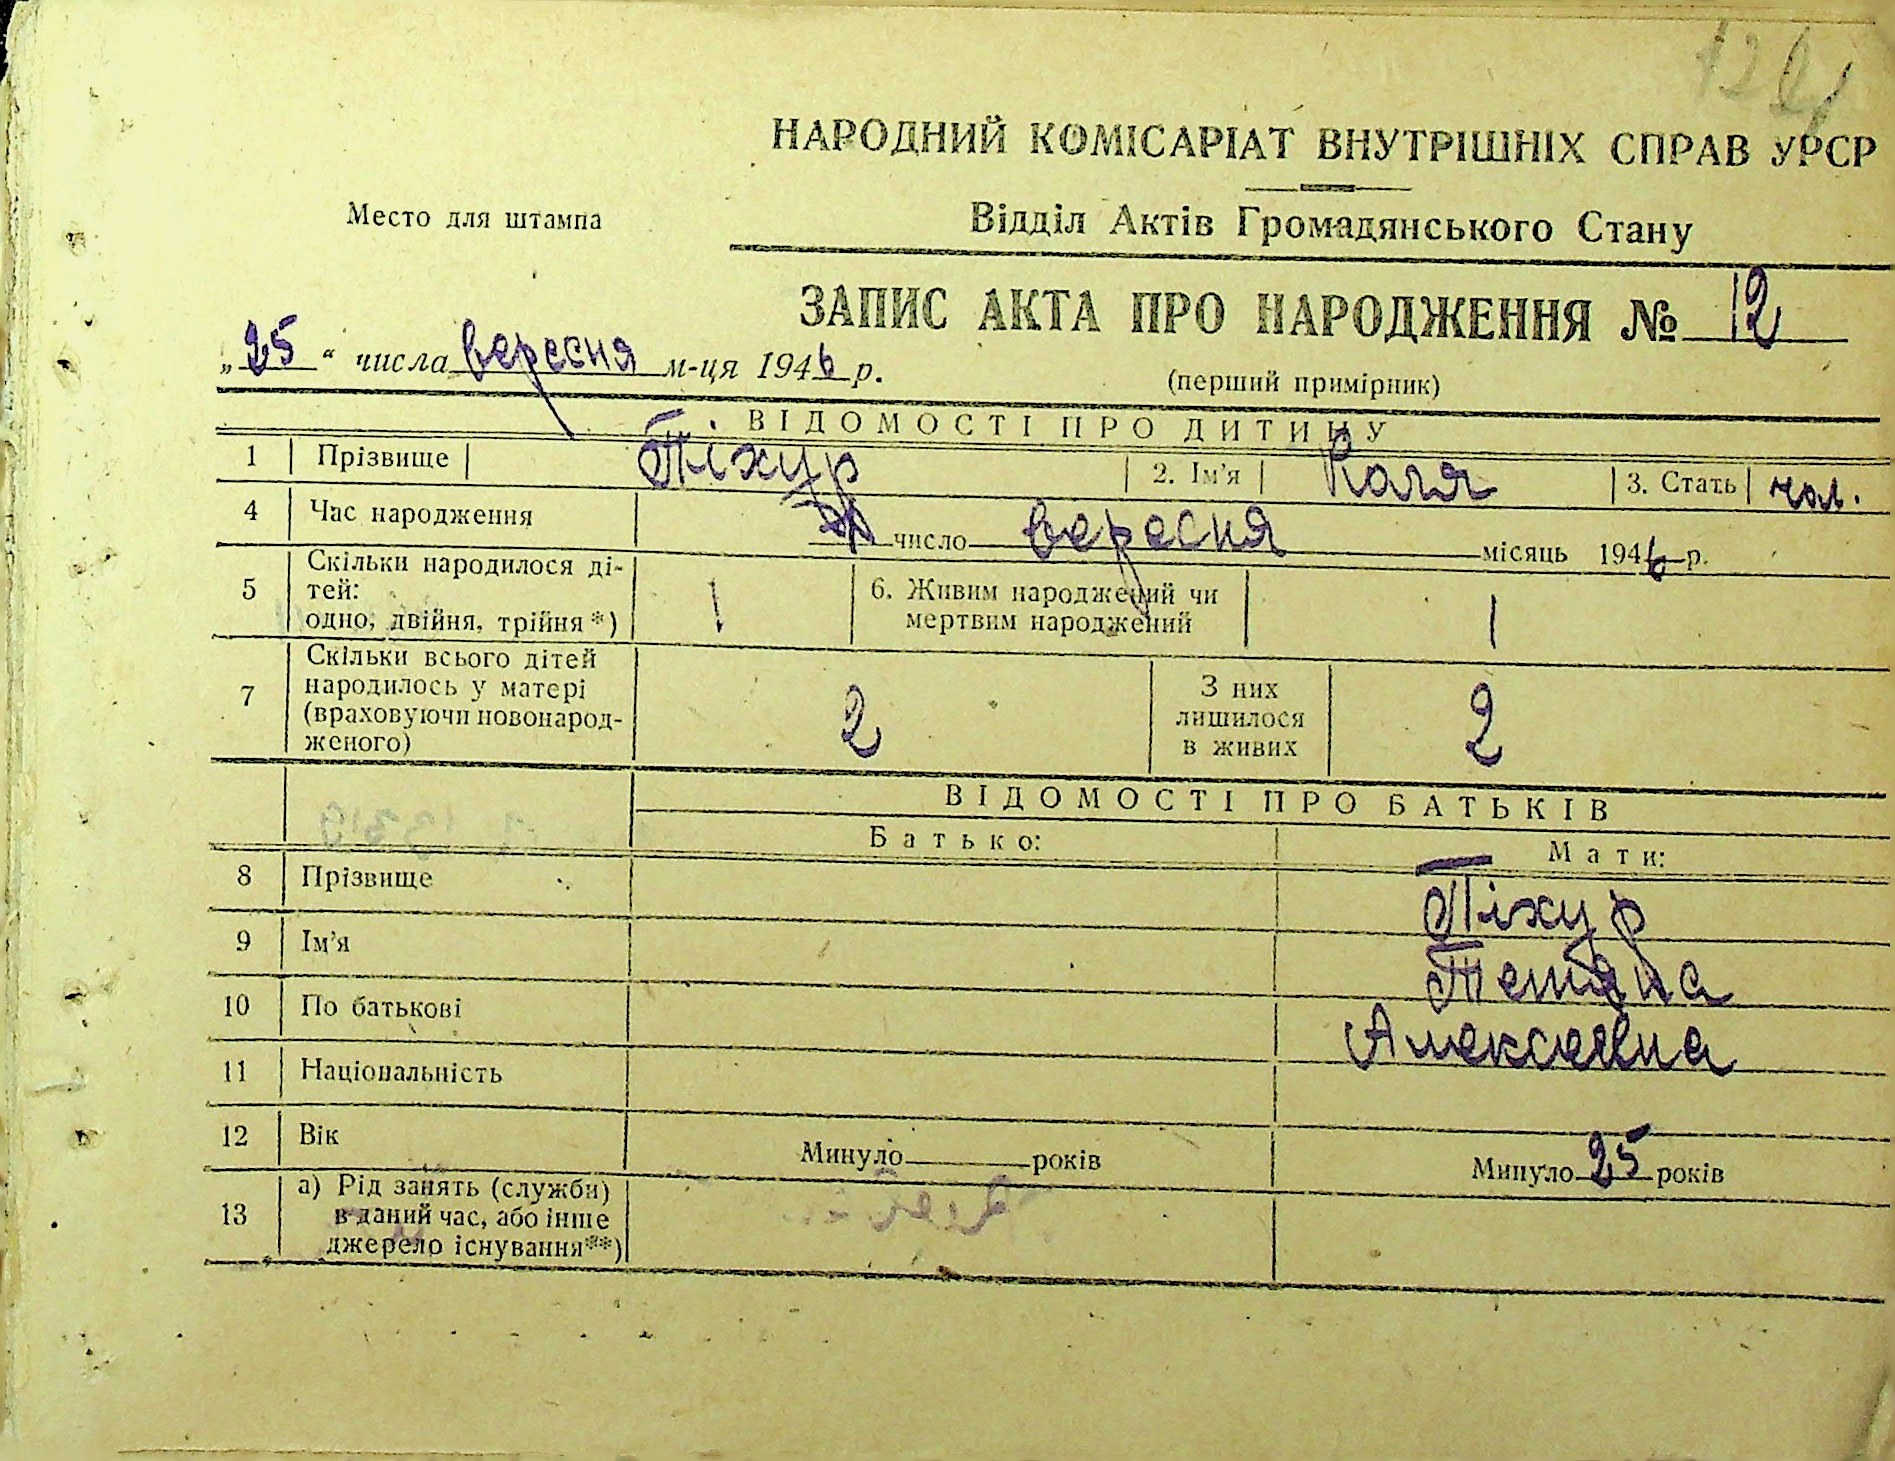 НАРОДНИЙ КОМІСАРІАТ ВНУТРІШНІХ СПРАВ УРСР
Место для штампа
Відділ Актів Громадянського Стану
ЗАПИС АКТА ПРО НАРОДЖЕННЯ № 12
„25“ числа вересня м-ця 1946 р.
(перший примірник)
ВІДОМОСТІ ПРО ДИТИНУ
1 Прізвище Тіхур 2. Ім'я Коля 3. Стать чол.
4 Час народження число вересня місяць 1946 р.
5 Скільки народилося ді-
тей:
одно, двійня, трійня*) 1
6. Живим народжений чи
мертвим народжений 1
7 Скільки всього дітей
народилось у матері
(враховуючи новонарод-
женого) 2
З них
лишилося
в живих 2
ВІДОМОСТІ ПРО БАТЬКІВ
Батько: Мати:
8 Прізвище Тіхур
9 Ім'я Тетяна
10 По батькові Алексеевна
11 Національність
12 Вік Минуло років Минуло 25 років
13 а) Рід занять (служби)
в даний час, або інше
джерело існування**)